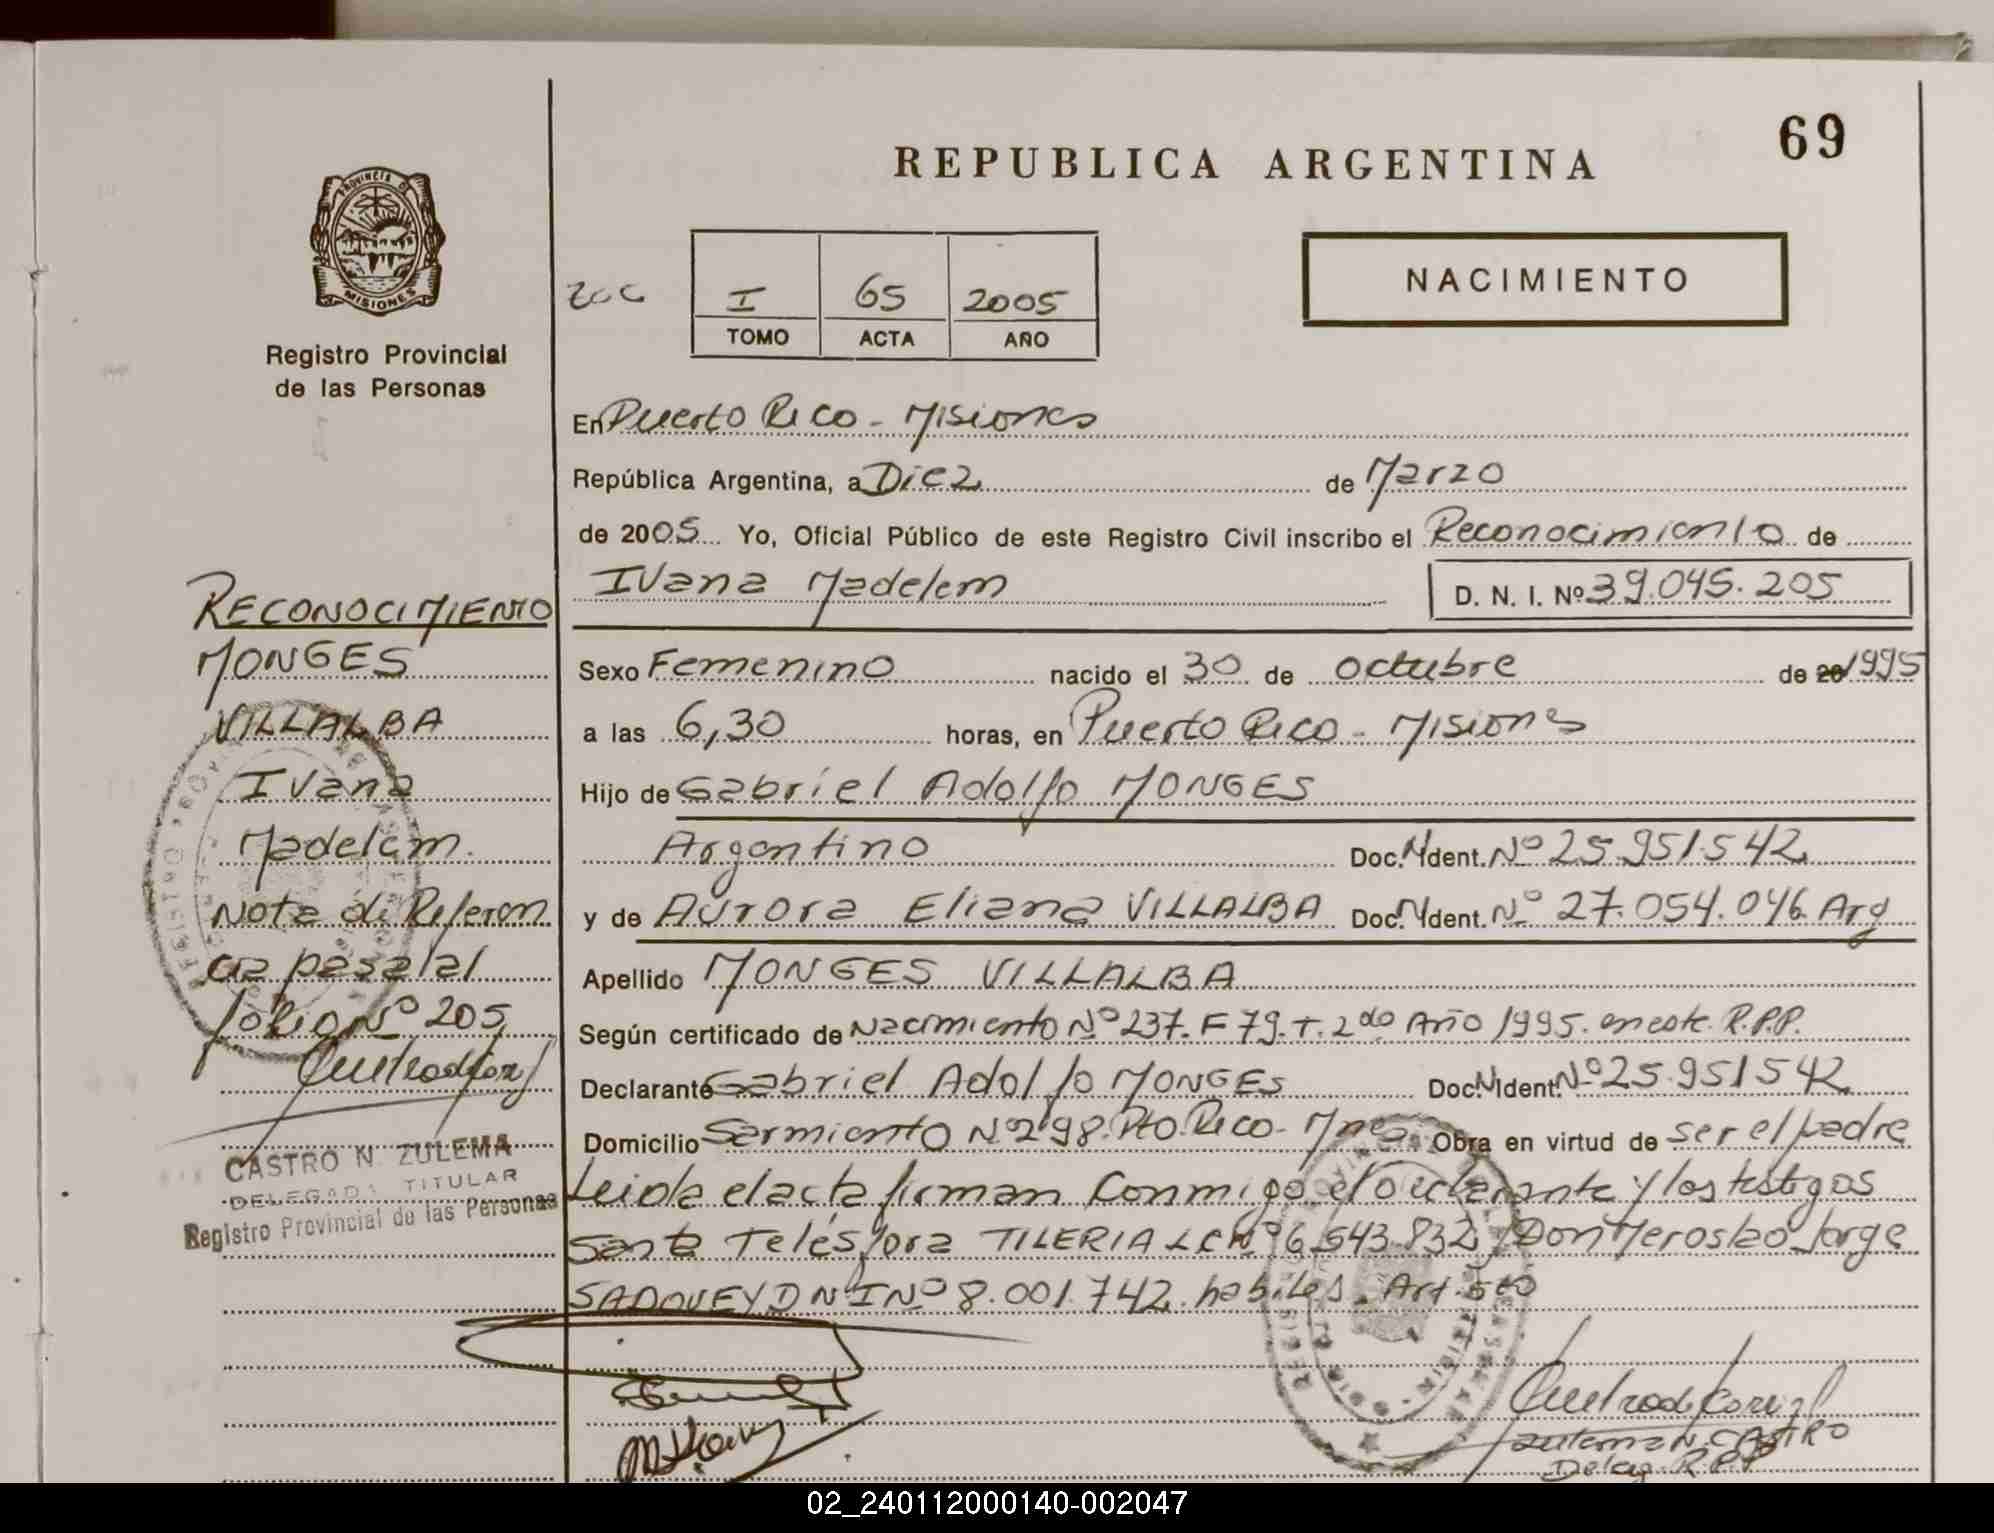 69
REPUBLICA ARGENTINA
PROVINCIA DE
MISIONES
Registro Provincial
de las Personas
I 65 2005
TOMO ACTA AÑO
NACIMIENTO
En Puerto Rico - Misiones
República Argentina, a Diez de Marzo
de 2005 Yo, Oficial Público de este Registro Civil inscribo el Reconocimiento de
Ivana Madelem D. N. I. Nº 39.045.205
Sexo Femenino nacido el 30 de octubre de 20 1995
a las 6,30 horas, en Puerto Rico - Misiones
Hijo de Gabriel Adolfo MONGES
Argentino Doc. Ident. Nº 25.951.542
y de Aurora Eliana VILLALBA Doc. Ident. Nº 27.054.046 Arg
Apellido MONGES VILLALBA
Según certificado de Nacimiento Nº 237. F 79. T. 2do Año 1995. en este R.P.P.
Declarante Gabriel Adolfo MONGES Doc. Ident. Nº 25.951542
Domicilio Sarmiento Nº 298. Pto. Rico - Mnes Obra en virtud de ser el padre
Leida el acta firman conmigo el declarante y los testigos
Santa Telésfora TILERIA LC Nº 6.543.832 y Don Meroslao Jorge
SADOVEY DNI Nº 8.001.742. habiles. Art. 5to
RECONOCIMIENTO
MONGES
VILLALBA
Ivana
Madelem.
Nota de Referen
cia pasa al
folio Nº 205
CASTRO N. ZULEMA
DELEGADA TITULAR
Registro Provincial de las Personas
Zulema N. CASTRO
Deleg. R.P.P
02_240112000140-002047